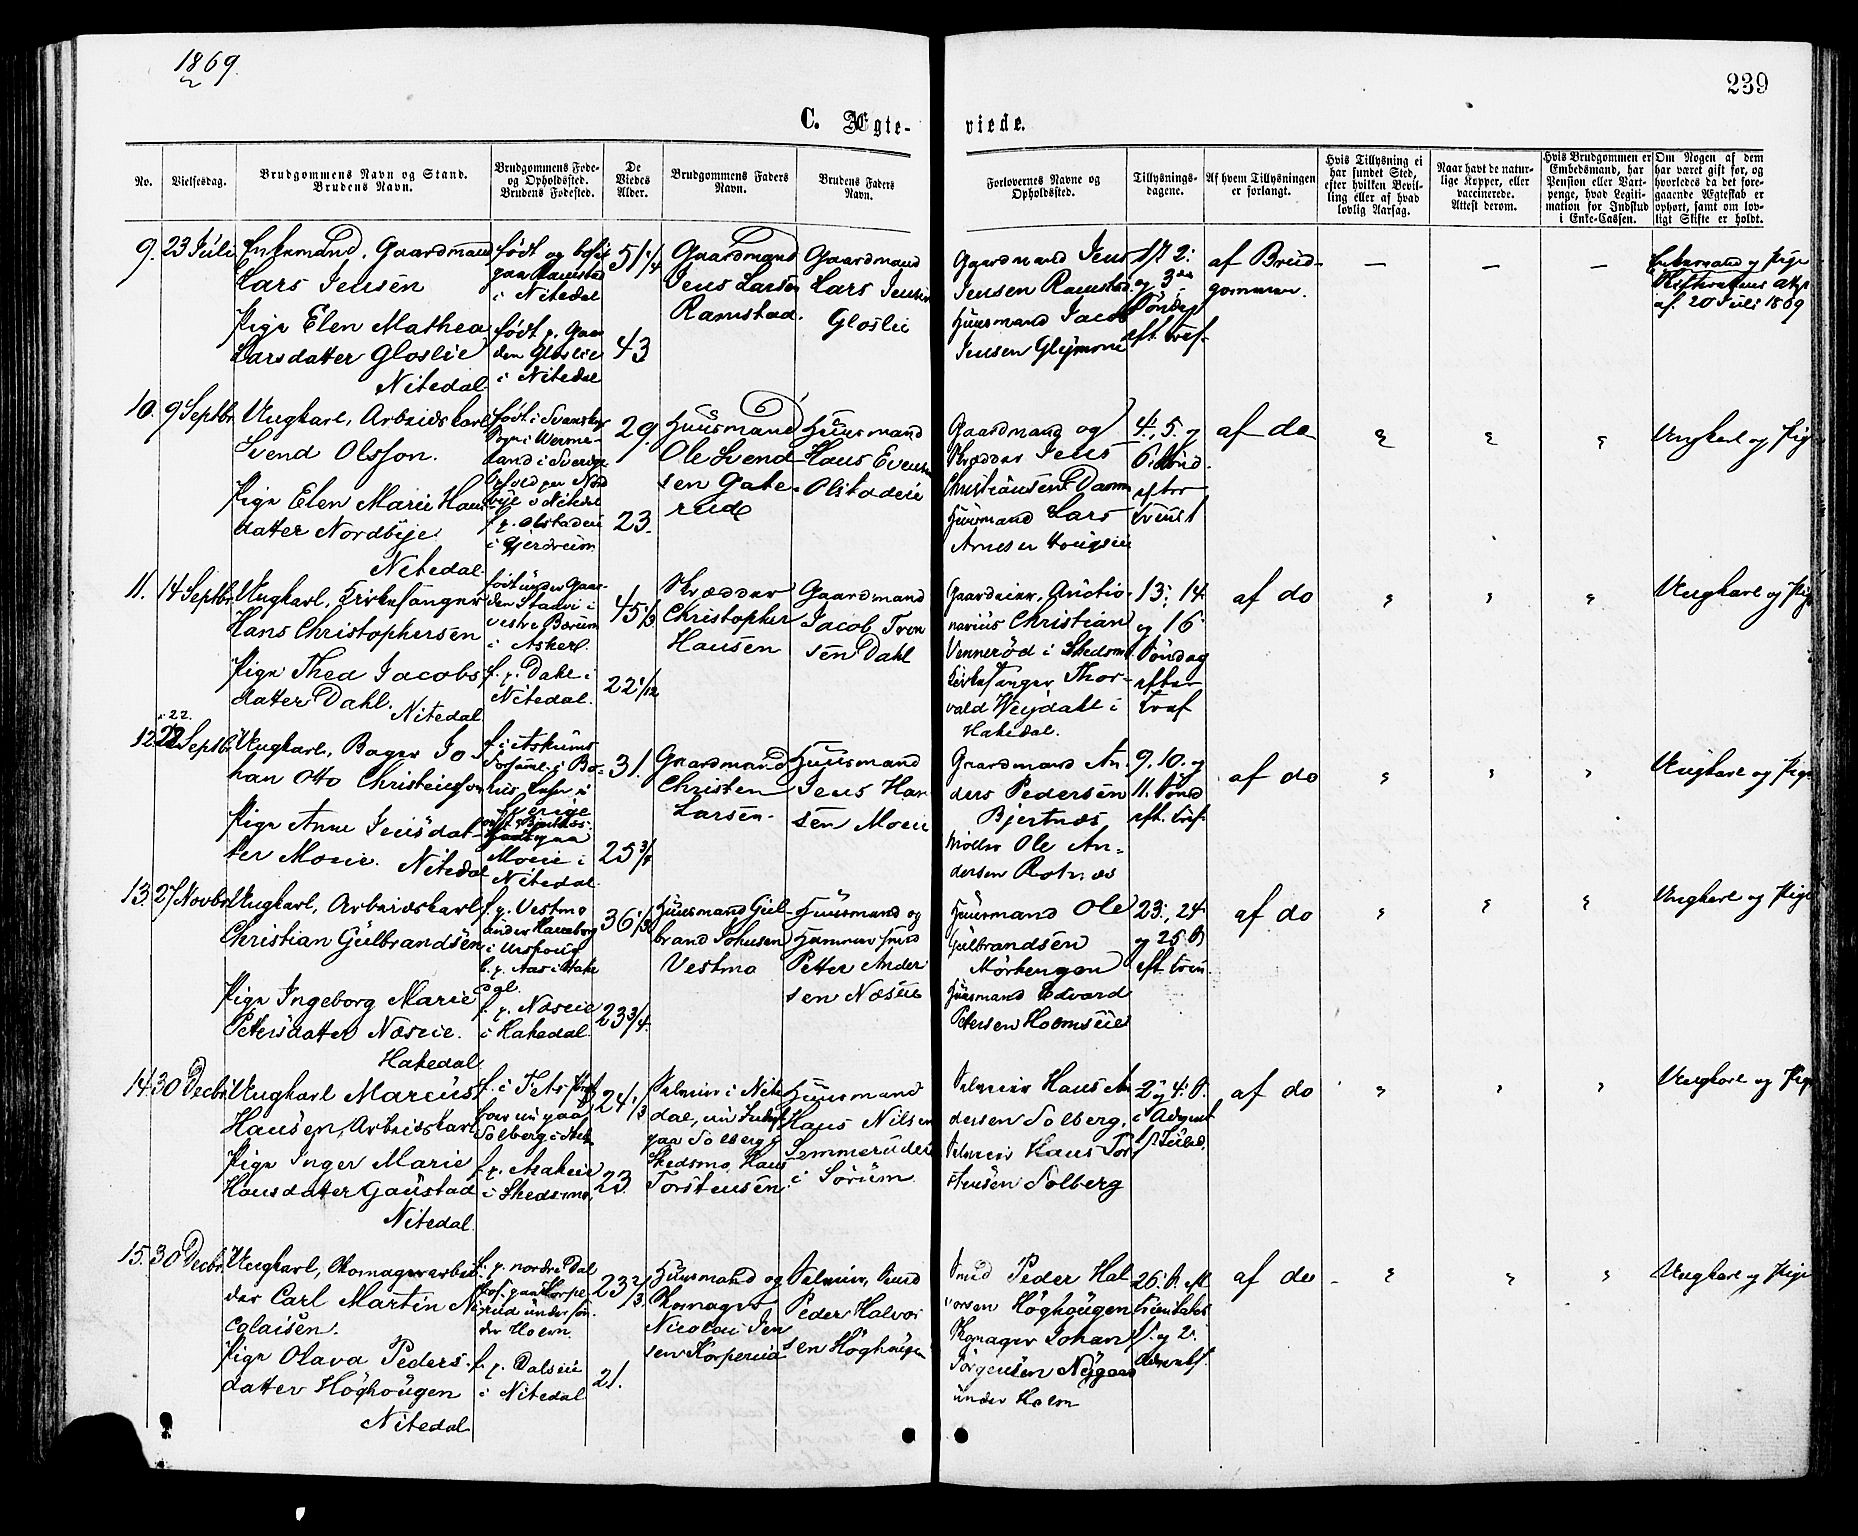 1869
239
C. Ægte-
viede.
No.
Vielsesdag.
Brudgommens Navn og Stand.
Brudens Navn.
Brudgommens Føde-
og Opholdssted.
Brudens Fødested.
De
Viedes
Alder.
Brudgommens Faders
Navn.
Brudens Faders
Navn.
Forlovernes Navne og
Opholdssted.
Tillysnings-
dagene.
Af hvem Tillysningen
er forlangt.
Hvis Tillysning ei
har fundet Sted,
efter hvilken Bevil-
ling eller af hvad
lovlig Aarsag.
Naar havt de natur-
lige Kopper, eller
vaccinerede.
Attest derom.
Hvis Brudgommen er
Embedsmand, har
Pension eller Vart-
penge, hvad Legiti-
mation for Indskud
i Enke-Cassen.
Om Nogen af dem
har været gift før, og
hvorledes da det fore-
gaaende Ægteskab er
ophørt, samt om lov-
ligt Skifte er holdt.
9. 23 Juli
Enkemand, Gaardmand
Lars Jensen
Pige Elen Mathea
Larsdatter Gloslie
Nitedal
født og bosat
paa Ramstad
i Nitedal
født p. Gaar
den Gloslie
i Nitedal
51 1/4
43
Gaardmand
Jens Larsen
Ramstad.
Gaardmand
Lars Jensen
Gloslie
Gaardmand Jens
Jensen Ramstad
Huusmand Jacob
Jensen
1ste 2.
og 3die
Søndag
eft. Tref.
af Brud-
gommen.
Enkemand og Pige
af 20 Juli 1869
10. 9 Septbr
Ungkarl, Arbeidskarl
Svend Olsson.
Pige Elen Marie Hans
datter Nordbye
Nitedal
født i Svanskog
Sogn i Werme-
land i Sverige
Nord
bye i Nitedal
f. p. Olstadeie
i Gjerdrum
29.
23.
Huusmand
Ole Svend
sen Gate-
rud
Huusmand
Hans Evensen
Olstadeie
Gaardmand og
Skrædder Jens
Christiansen Damm
Huusmand Lars
Arnesen
4., 5. og
6. Sønd.
efter
Trinit
af do
Ungkarl og Pige
11. 14 Septbr
Ungkarl, Kirkesanger
Hans Christophersen
Pige Thea Jacobs
datter Dahl.
Nitedal
født under Gaar-
den Stavi i
vestre Bærum
i Asker.
f. p. Dahl i
Nitedal.
45 1/3
22 1/12
Skrædder
Christopher
Hansen
Gaardmand
Jacob Iven
sen Dahl
Gaardeier, Auctio-
narius Christian
Vennerød i Skedsmo
Kirkesanger Thor-
vald Weydahl i
Hakedal.
13., 14.
og 16
Søndag
efter
Tref
af do
Ungkarl og Pige
12. 22 Septbr.
Ungkarl, Bager Jo-
han Otto Christensson
Pige Anne Jensdat-
ter Moeie.
Nitedal
f. i Askums
Forsaml. i Bo-
hus Lehn i
Sverige
Moeie i
Nitedal.
31.
25 3/4
Gaardmand
Christen
Larsen.
Huusmand
Jens Han
sen Moeie
Gaardmand An-
ders Pedersen
Bjertnæs
Møller Ole An-
dersen Rotnæs
9. 10. og
11. Sønd
eft. Tref.
af do
Ungkarl og Pige
13. 27 Novbr.
Ungkarl, Arbeidskarl
Christian Gulbrandsen
Pige Ingeborg Marie
Petersdatter Næseie.
Hakedal
f. p. Vestmo
under Haneborg
i Urskoug
b. p. Aas i Hake
dal.
f. p. Næseie
i Hakedal
23 3/4.
Huusmand Gul-
brand Johnsen
Vestmo
Huusmand og
Hammersmed
Petter Ander
sen Næseie
Huusmand Ole
Gulbrandsen
Mörkengen
Huusmand Edvard
Petersen Holmseie
23., 24.
og 25 S.
eft. Trin.
af do
Ungkarl og Pige
14. 30 Decbr.
Ungkarl Marius
Hansen, Arbeidskarl
Pige Inger Marie
Hansdatter Gaustad
Nitedal
Solberg i Sked.
i Skedsmo,
24 1/3
23
Selveier i Nite
dal, nu Inderst
paa Solberg i
Skedsmo, Hans
Torstensen.
Huusmand
Hans Nilsen
Lemmerudeie
i Sørum
Selveier Hans An
dersen Solberg,
Selveier Hans Tor
stensen Solberg
2 og 4. S.
i Advent
af do
Ungkarl og Pige
15. 30 Decbr.
Ungkarl, Skomagerarbei
der Carl Martin Ni
colaisen.
Pige Olava Peders-
datter Höghougen
Nitedal
f. p. nordre Dal
bos. paa Korpe-
rud under søn-
dre Holm.
f. p. Dalseie
i Nitedal
23 2/3
21.
Huusmand og
Skomager
Nicolai Jen
sen Korperud
Selveier, Smed
Peder Halvor
sen Höghougen
Smed Peder Hal
vorsen Höghougen
Skomager Johan
Jörgensen Nygaard
under Holm
26. S. eft.
1. og 2.
Advent.
af do
Ungkarl og Pige